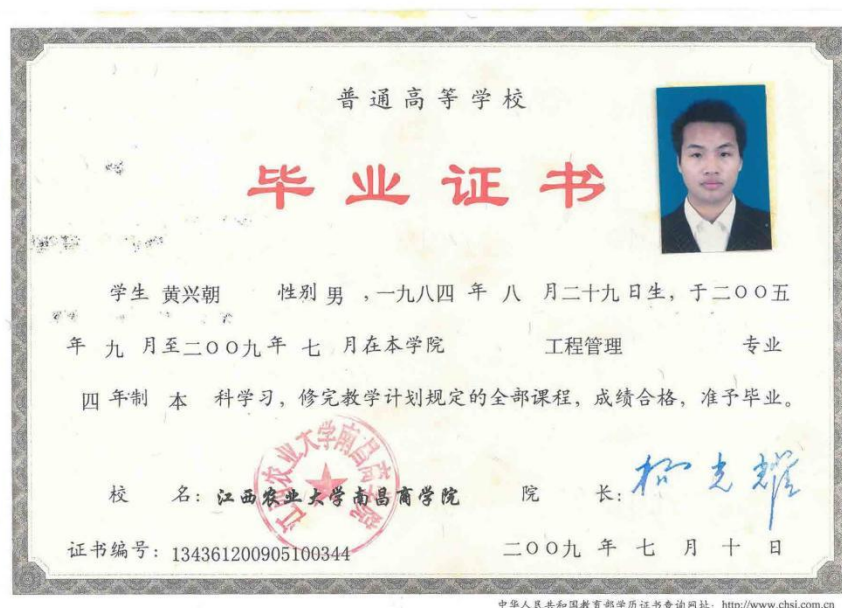 普通高等学校
毕业证书
学生 黄兴朝 性别 男 ,一九八四 年 八 月二十九日生，于二〇〇五
年 九 月至二〇〇九年 七 月在本学院 工程管理 专业
四 年制 本 科学习，修完教学计划规定的全部课程，成绩合格，准予毕业。
江西农业大学南昌商学院
校 名：江西农业大学南昌商学院 院 长：
证书编号：134361200905100344 二〇〇九 年 七 月 十 日
中华人民共和国教育部学历证书查询网址：http://www.chsi.com.cn